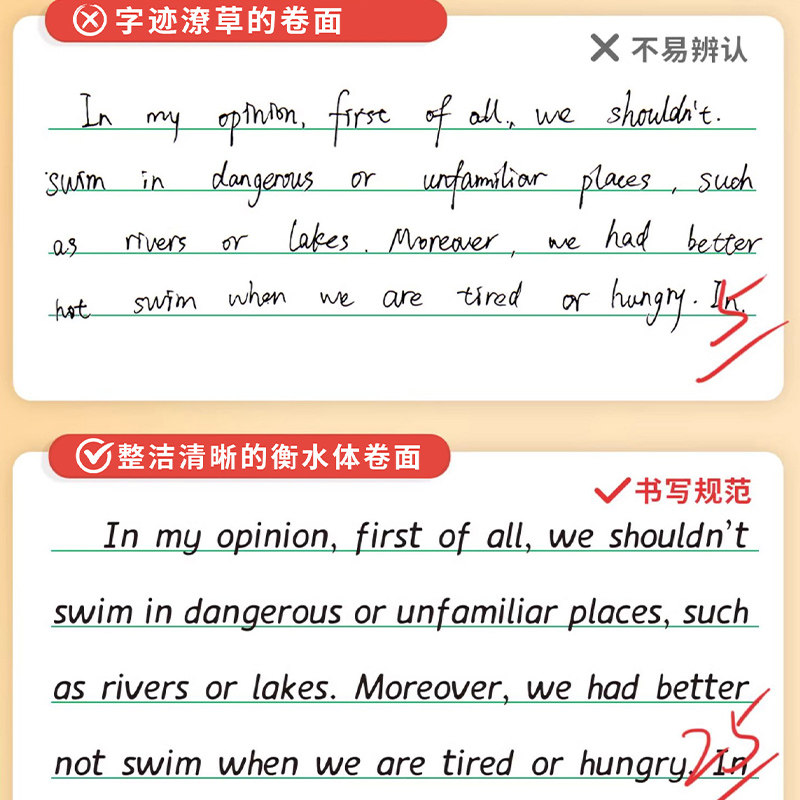 字迹潦草的卷面
不易辨认
In my opinion, first of all, we shouldn't.
swim in dangerous or unfamiliar places, such
as rivers or lakes. Moreover, we had better
not swim when we are tired or hungry. In
5
整洁清晰的衡水体卷面
书写规范
In my opinion, first of all, we shouldn't
swim in dangerous or unfamiliar places, such
as rivers or lakes. Moreover, we had better
not swim when we are tired or hungry. In
25